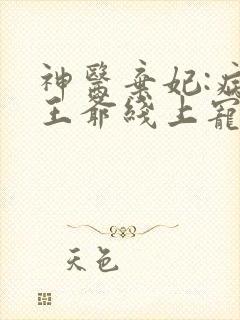 神醫棄妃:病
王爺綫上寵
天色